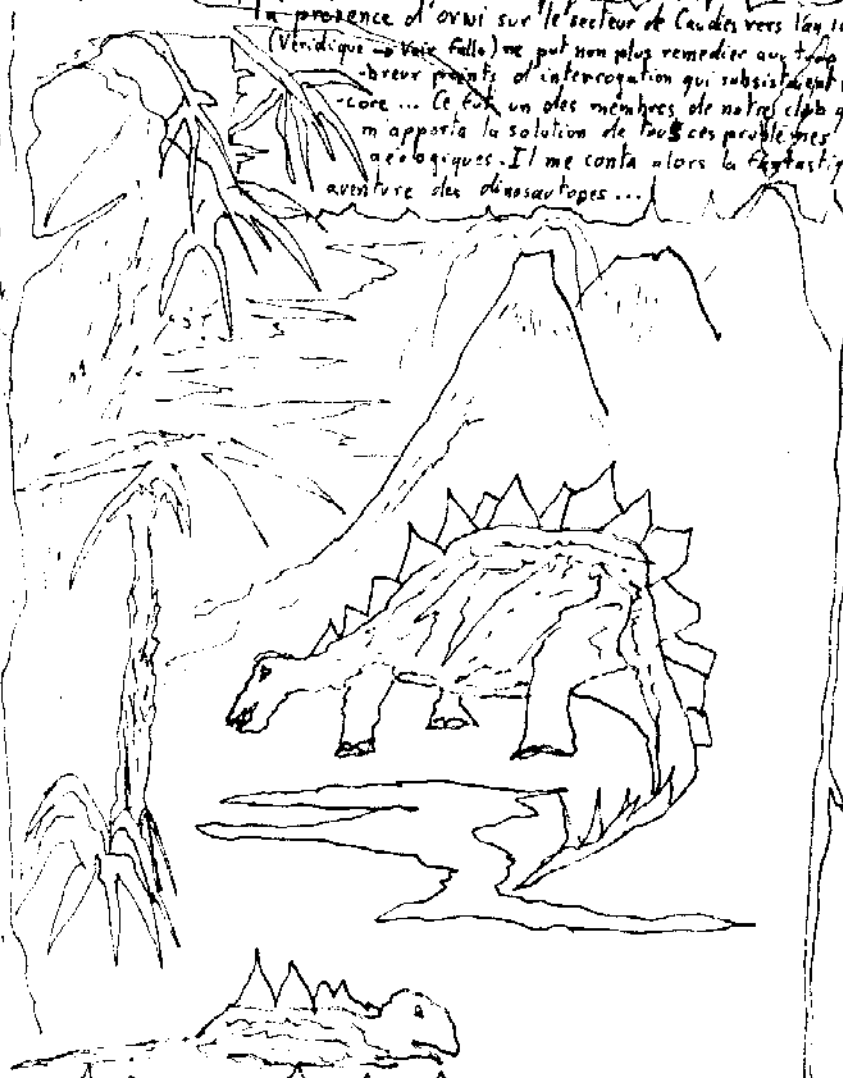 la présence d'ovni sur le secteur de Caudies vers l'an
(Véridique → Voir Falla) ne put non plus remedier aux trop
-breux points d'interrogation qui subsistaient
-core ... Ce fut un des membres de notre club
m'apporta la solution de tous ces problèmes
Il me conta alors la fantastiq
aventure des dinosautopes ...